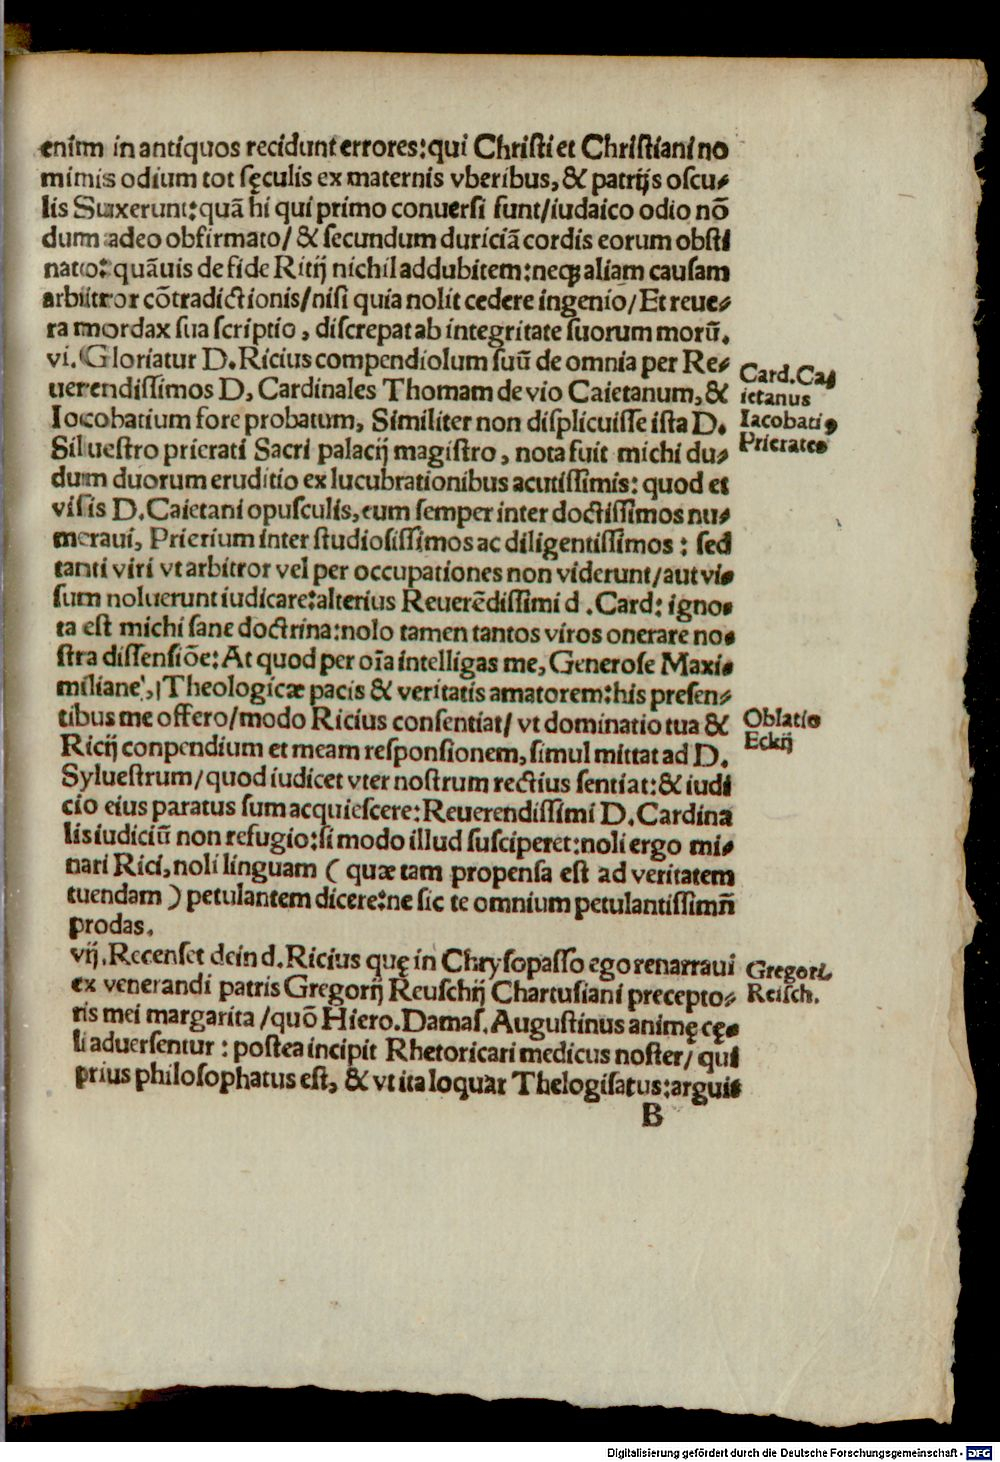 enim in antiquos recidunt errores:qui Christi et Christiani no
minis odium tot sęculis ex maternis vberibus, & patrijs oscu⸗
lis Suxerunt:quā hi qui primo conuersi sunt/iudaico odio nō
dum adeo obfirmato/ & secundum duriciā cordis eorum obsti
nato: quāuis de fide Ritij nichil addubitem:neqꝫ aliam causam
arbitror cōtradictionis/nisi quia nolit cedere ingenio/Et reue⸗
ra mordax sua scriptio, discrepat ab integritate suorum morū.
vi. Gloriatur D. Ricius compendiolum suū de omnia per Re⸗
uerendissimos D, Cardinales Thomam de vio Caietanum,&
Iocobatium fore probatum, Similiter non displicuisse ista D.
Siluestro prierati Sacri palacij magistro, nota fuit michi du⸗
dum duorum eruditio ex lucubrationibus acutissimis: quod et
visis D. Caietani opusculis, eum semper inter doctissimos nu⸗
meraui, Prierium inter studiosissimos ac diligentissimos : sed
tanti viri vt arbitror vel per occupationes non viderunt/aut vi⸗
sum noluerunt iudicare:alterius Reuerēdissimi d . Card: igno⸗
ta est michi sane doctrina:nolo tamen tantos viros onerare no⸗
stra dissensiōe: At quod per oīa intelligas me, Generose Maxi⸗
miliane, Theologicæ pacis & veritatis amatorem:his presen⸗
tibus me offero/modo Ricius consentiat/ vt dominatio tua &
Ricij conpendium et meam responsionem, simul mittat ad D.
Syluestrum/quod iudicet vter nostrum rectius sentiat:& iudi
cio eius paratus sum acquiescere:Reuerendissimi D. Cardina
lis iudiciū non refugio:si modo illud susciperet:noli ergo mi⸗
nari Rici, noli linguam ( quæ tam propensa est ad veritatem
tuendam ) petulantem dicere:ne sic te omnium petulantissimū
prodas.
vij. Recenset dein d. Ricius quę in Chrysopasso ego renarraui
ex venerandi patris Gregorij Reuschij Chartusiani precepto⸗
ris mei margarita /quō Hiero. Damas. Augustinus animę cę⸗
li aduersentur : postea incipit Rhetoricari medicus noster/ qui
prius philosophatus est, & vt ita loquar Thelogisatus:argui⸗
B
Card. Ca⸗
ietanus
Iacobati⸗
Prierates
Oblatio
Eckij
Gregori.
Reisch.
Digitalisierung gefördert durch die Deutsche Forschungsgemeinschaft - DFG